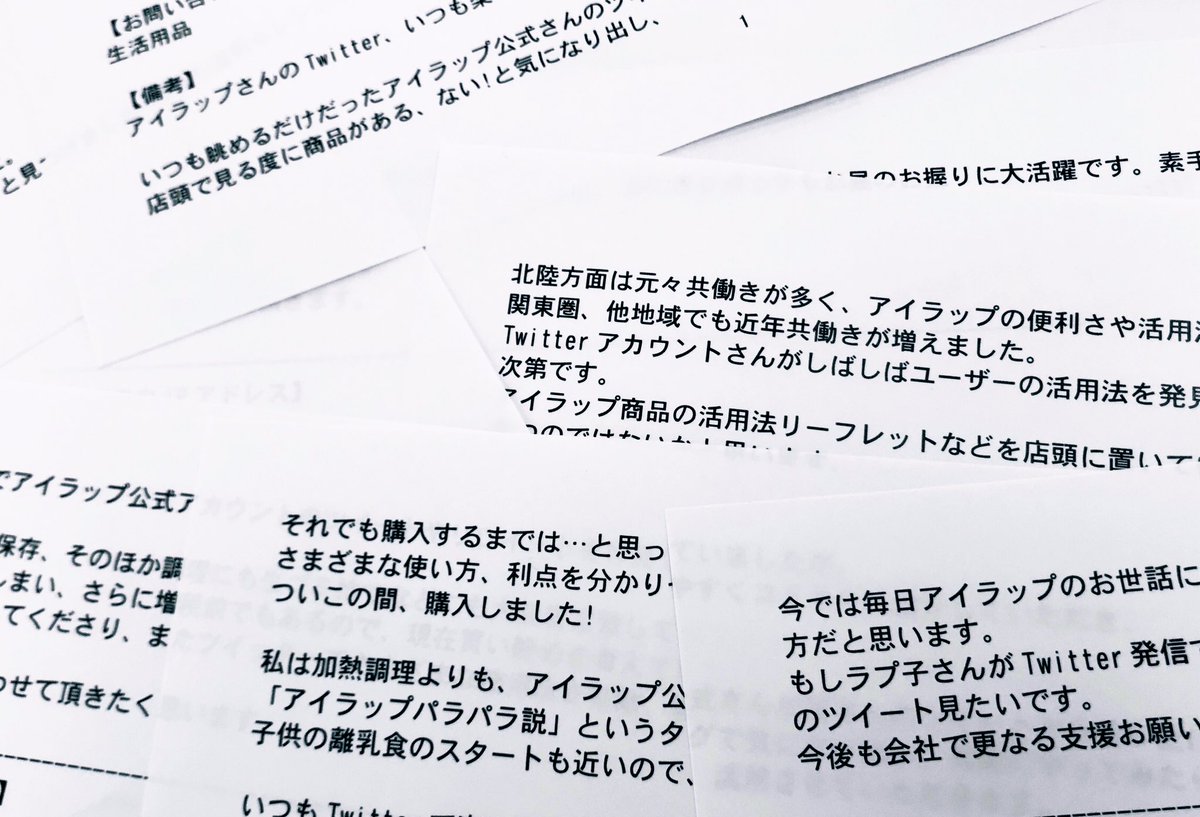 【お問い合
生活用品
【備考】
アイラップさんのTwitter、いつも楽
いつも眺めるだけだったアイラップ公式さんのツイ
店頭で見る度に商品がある、ない!と気になり出し、
1
と見
のお握りに大活躍です。素手
北陸方面は元々共働きが多く、アイラップの便利さや活用法
関東圏、他地域でも近年共働きが増えました。
Twitterアカウントさんがしばしばユーザーの活用法を発見
次第です。
アイラップ商品の活用法リーフレットなどを店頭に置いて
のではないかと思い
でアイラップ公式ア
保存、そのほか調
しまい、さらに増
てくださり、ま
わせて頂きたく
それでも購入するまでは…と思っ
さまざまな使い方、利点を分かりや
ついこの間、購入しました!
私は加熱調理よりも、アイラップ公
「アイラップパラパラ説」というタ
子供の離乳食のスタートも近いので、
いつもTwitter
今では毎日アイラップのお世話に
方だと思います。
もしラプ子さんがTwitter発信で
のツイート見たいです。
今後も会社で更なる支援お願い